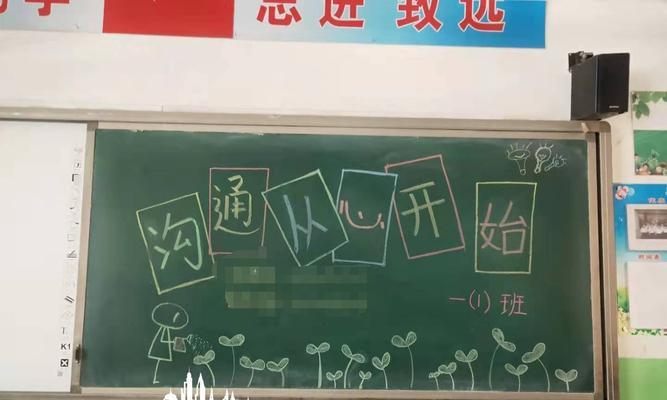 思进 致远
沟通从心开始
一(1)班
T
K1